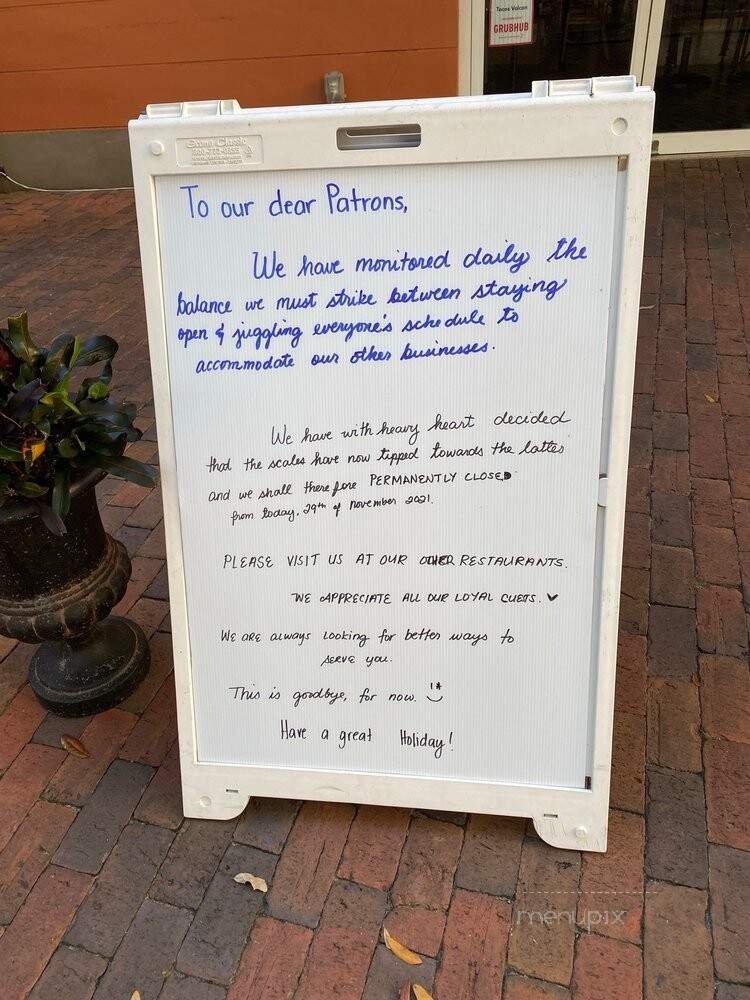 Tacos Volcan
GRUBHUB
To our dear Patrons,
We have monitored daily the
balance we must strike between staying
open & juggling everyone's schedule to
accommodate our other businesses.
We have with heavy heart decided
that the scales have now tipped towards the latter
and we shall therefore PERMANENTLY CLOSED
from today, 29th of November 2021.
PLEASE VISIT US AT OUR OTHER RESTAURANTS.
WE APPRECIATE ALL OUR LOYAL GUETS.
We are always looking for better ways to
serve you.
This is goodbye, for now.
Have a great Holiday!
menupix